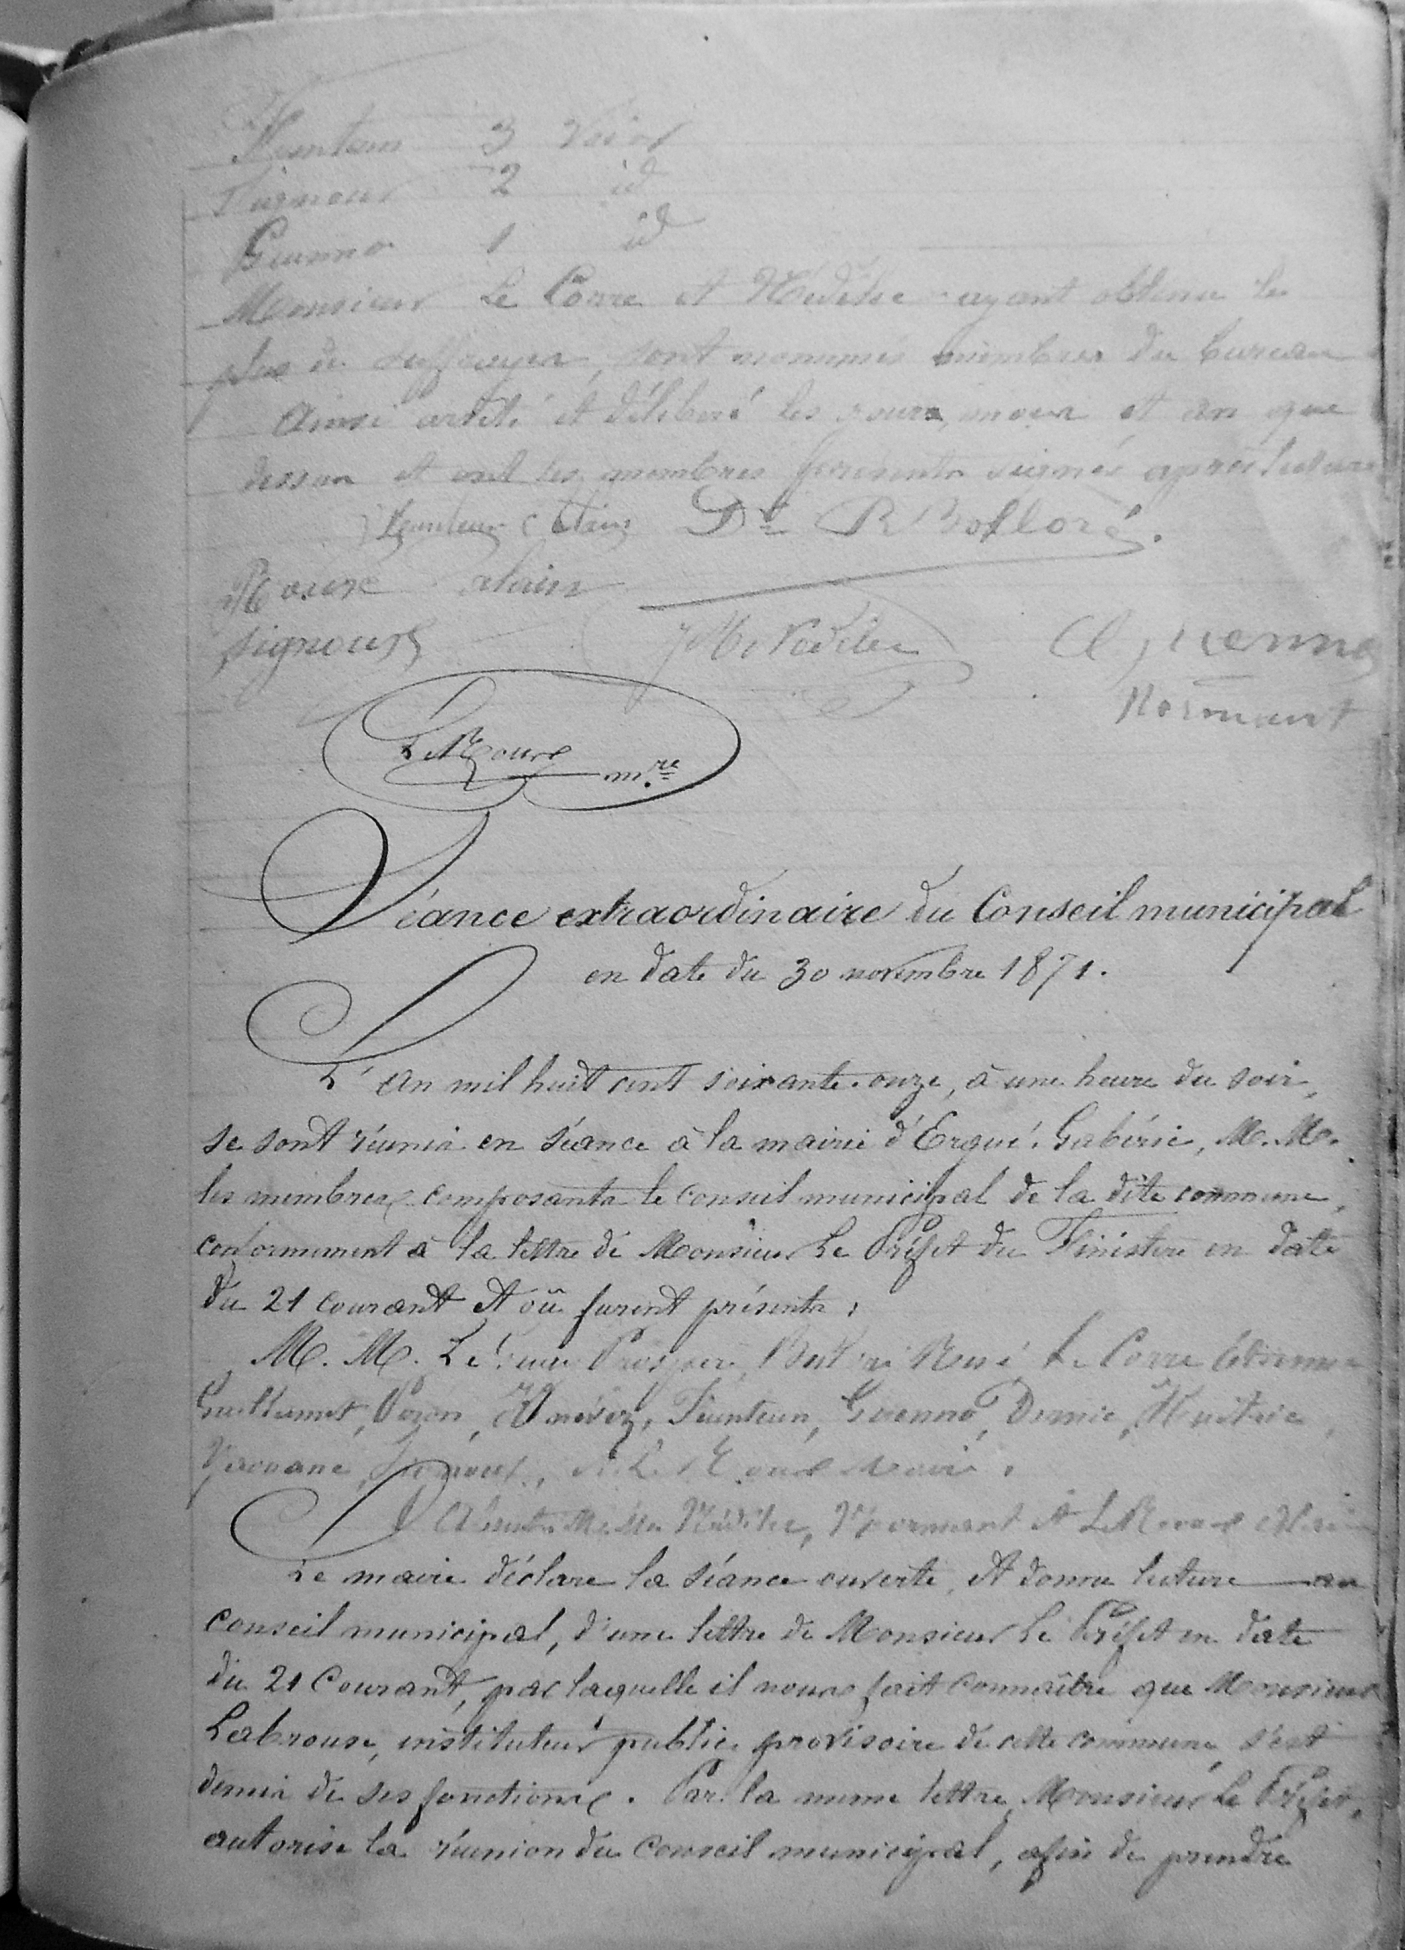 3 Voix
2 id
Guenno 1 id
Monsieur Le Corre et Nédelec ayant obtenu le
plus de suffrages, sont nommés membres du bureau
Ainsi arrêté et délibéré les jours, mois et an que
dessus et ont les membres présents signés après lecture
Dr R Bolloré.
Rouxe alain
signour
JM Nédélec A guenno
Normant
Le Rouxe mre
Séance extraordinaire du Conseil municipal
en date du 30 novembre 1871.
L'an mil huit cent soixante-onze, à une heure du soir,
se sont réunis en séance à la mairie d'Ergué-Gabéric, M.M.
les membres composants le conseil municipal de la dite commune,
conformement à la lettre de Monsieur Le Préfet du Finistère en date
du 21 courant et où furent présents,
M.M. Prosper, Bolloré René Le Corre Etienne
Guillermet, Feunteun, Guenno, Huitric,
Maire.
Absents M.M. Nédélec, Normant et Le Roux Alain
Le maire déclare la séance ouverte, et donne lecture au
conseil municipal, d'une lettre de Monsieur Le Préfet en date
du 21 Courant, par laquelle il nous fait connaître que Monsieur
Labrouse, instituteur public provisoire de cette commune, s'est
demis de ses fonctions. Par la meme lettre, Monsieur Le Préfet,
autorise la réunion du conseil municipal, afin de prendre